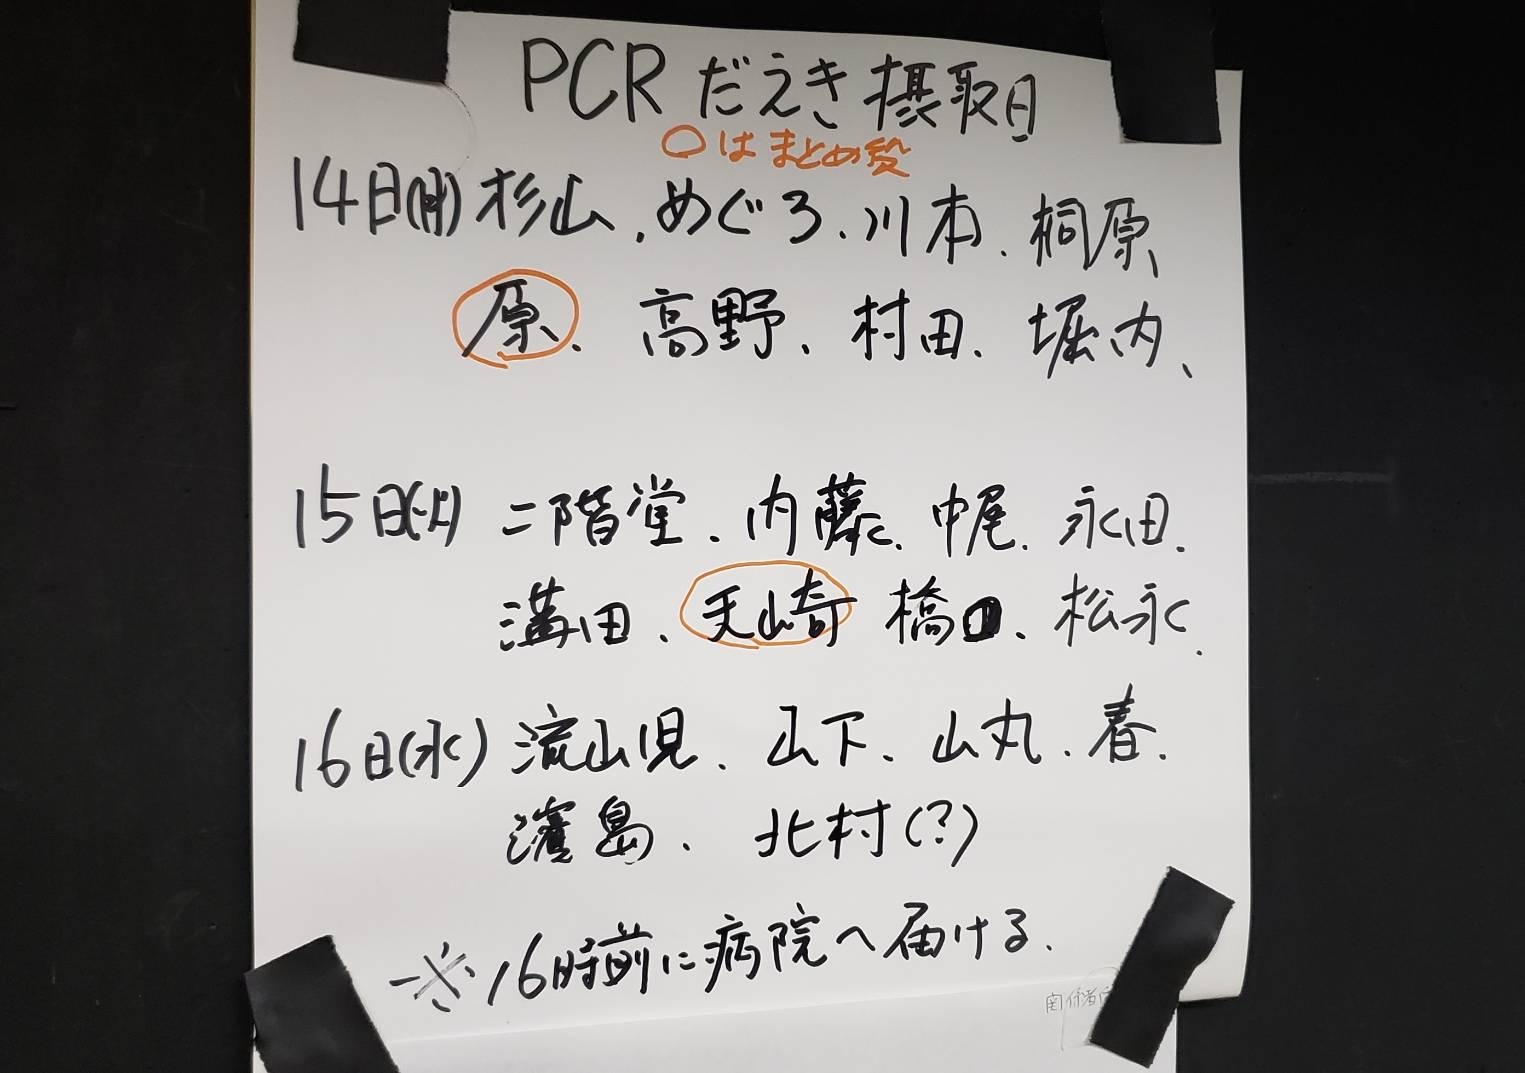 PCR だえき摂取日
○はまとめ役
14日(月) 杉山、めぐろ、川本、桐原、
原、高野、村田、堀内、
15日(火) 二階堂、内藤、中尾、永田、
溝田、天崎 橋口、松永、
16日(水) 流山児、山下、山丸、春、
濱島、北村(?)
※16時前に病院へ届ける、
関係者